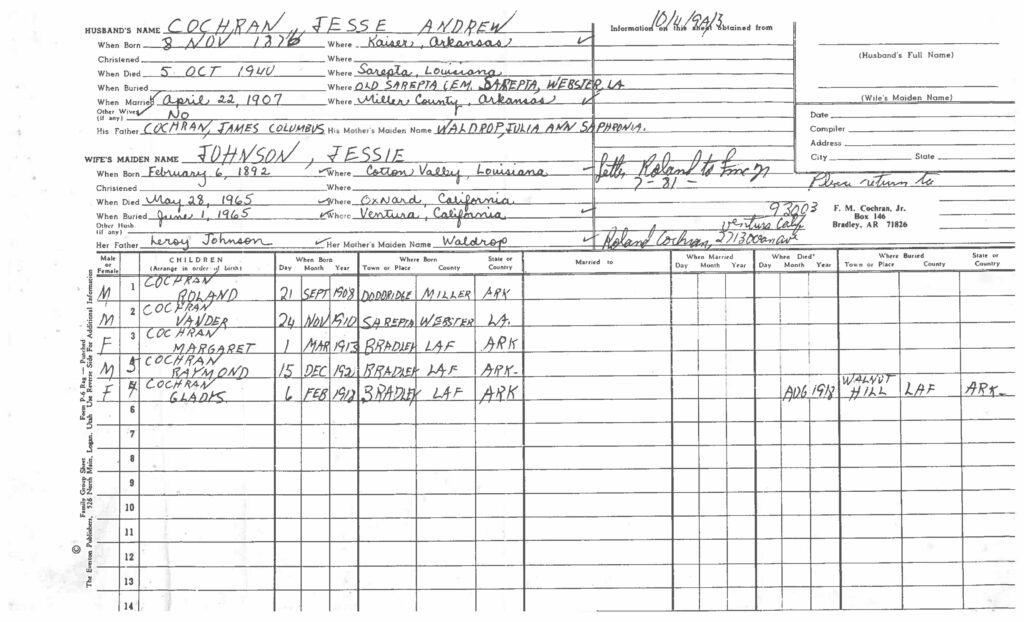 HUSBAND'S NAME COCHRAN, JESSE ANDREW
When Born 8 NOV 1876 Where Kaiser, Arkansas ✓
Christened Where
When Died 5 OCT 1940 Where Sarepta, Louisiana
When Buried Where OLD SAREPTA CEM. SAREPTA, WEBSTER, LA
When Married April 22, 1907 Where Miller County, Arkansas ✓
Other Wives (if any) No
His Father COCHRAN, JAMES COLUMBUS His Mother's Maiden Name WALDROP, JULIA ANN SAPHRONIA.
Information on this sheet obtained from
(Husband's Full Name)
(Wife's Maiden Name)
Date
Compiler
Address
City State
WIFE'S MAIDEN NAME JOHNSON, JESSIE
When Born February 6, 1892 Where Cotton Valley, Louisiana
Christened Where
When Died May 28, 1965 Where OxNard, California
When Buried June 1, 1965 Where Ventura, California
Other Husb. (if any)
Her Father Leroy Johnson ✓ Her Mother's Maiden Name Waldrop ✓
Letter Roland to Fmc Jr
7-81-
Please return to
93003
Ventura Calif
Roland Cochran,
F. M. Cochran, Jr.
Box 146
Bradley, AR 71826
Male or Female CHILDREN (Arrange in order of birth) When Born Day Month Year Where Born Town or Place County State or Country Married to When Married Day Month Year When Died Day Month Year Where Buried Town or Place County State or Country
M 1 COCHRAN ROLAND 21 SEPT 1908 DODDRIDGE MILLER ARK
M 2 COCHRAN VANDER 24 NOV 1910 SAREPTA WEBSTER LA.
F 3 COCHRAN MARGARET 1 MAR 1913 BRADLEY LAF ARK
M 5 COCHRAN RAYMOND 15 DEC 192 BRADLEY LAF ARK-
F 4 COCHRAN GLADYS. 6 FEB BRADLEY LAF ARK AUG 1918 WALNUT HILL LAF ARK-
6
7
8
9
10
11
12
13
14
© The Everton Publishers, 526 North Main, Logan, Utah
Family Group Sheet Form P-6 Reg — Punched
Use Reverse Side For Additional Information